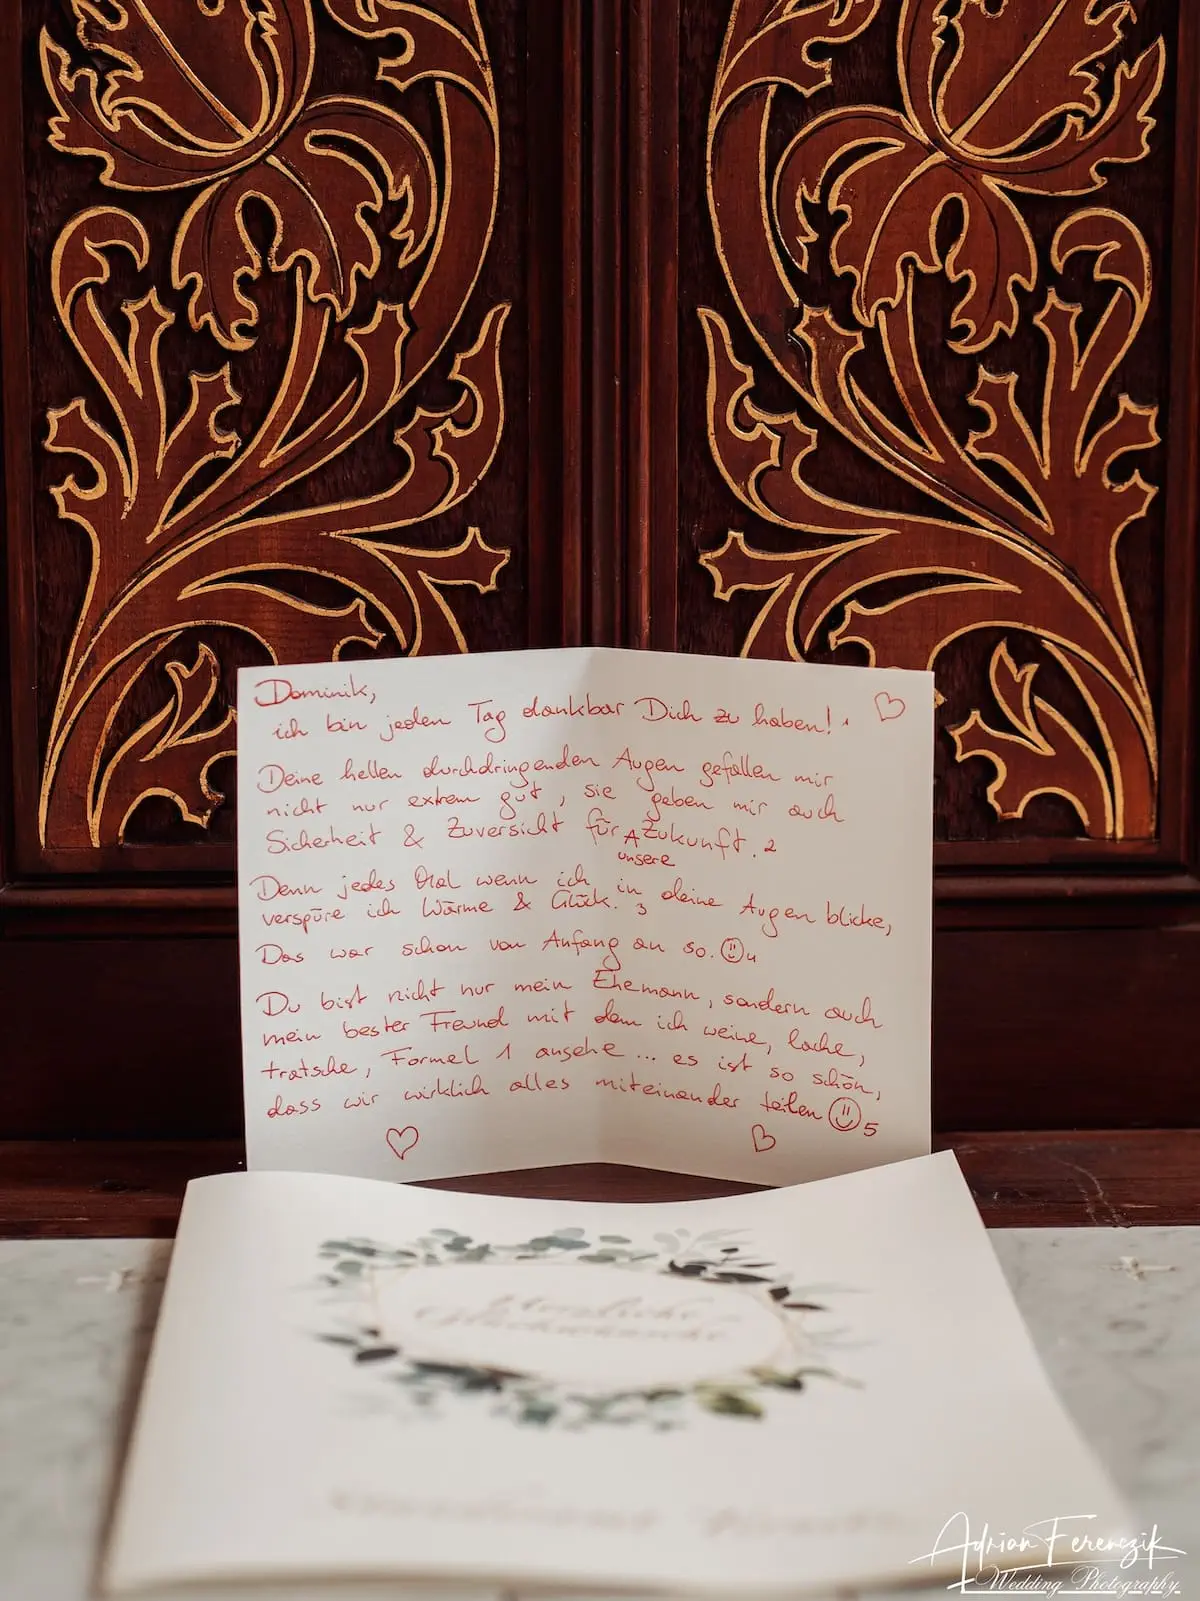 Dominik,
ich bin jeden Tag dankbar Dich zu haben! 1
Deine hellen durchdringenden Augen gefallen mir
nicht nur extrem gut, sie geben mir auch
Sicherheit & Zuversicht für Zukunft. 2
unsere
Denn jedes Mal wenn ich in deine Augen blicke,
verspüre ich Wärme & Glück. 3
Das war schon von Anfang an so. 4
Du bist nicht nur mein Ehemann, sondern auch
mein bester Freund mit dem ich weine, lache,
tratsche, Formel 1 ansehe ... es ist so schön,
dass wir wirklich alles miteinander teilen 5
Herzliche
Glückwünsche
Adrian Ferenczik
Wedding Photography